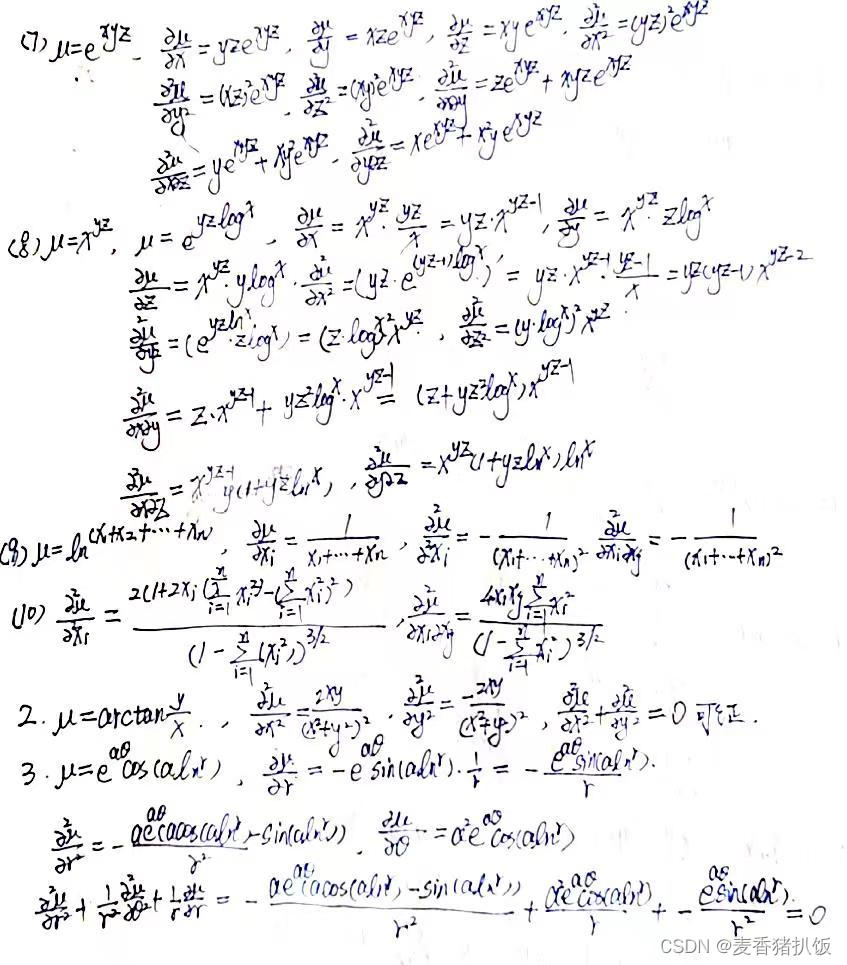 (7) μ=e^{xyz}, ∂μ/∂x=yze^{xyz}, ∂μ/∂y=xze^{xyz}, ∂μ/∂z=xye^{xyz}, ∂²μ/∂x²=(yz)²e^{xyz}
∂²μ/∂y²=(xz)²e^{xyz}, ∂²μ/∂z²=(xy)²e^{xyz}, ∂²μ/∂x∂y=ze^{xyz}+xyze^{xyz}
∂²μ/∂x∂z=ye^{xyz}+xy²e^{xyz}, ∂²μ/∂y∂z=xe^{xyz}+x²ye^{xyz}
(8) μ=x^{yz}, μ=e^{yzlogx}, ∂μ/∂x=x^{yz}·yz/x=yz·x^{yz-1}, ∂μ/∂y=x^{yz}·zlogx
∂μ/∂z=x^{yz}·ylogx. ∂²μ/∂x²=(yz·e^{(yz-1)logx})'=yz·x^{yz-1}·(yz-1)/x=yz(yz-1)x^{yz-2}
=(e^{yzlnx}·zlogx)'=(z·logx)²x^{yz}, ∂²μ/∂z²=(y·logx)²x^{yz}
∂²μ/∂x∂y=z·x^{yz-1}+yz²logx·x^{yz-1}=(z+yz²logx)x^{yz-1}
∂²μ/∂x∂z=x^{yz-1}y(1+yzlnx), ∂²μ/∂y∂z=x^{yz}(1+yzlnx)lnx
(9) μ=ln(x₁+x₂+⋯+xₙ), ∂μ/∂xᵢ=1/(x₁+⋯+xₙ), ∂²μ/∂²xᵢ=-1/(x₁+⋯+xₙ)² ∂²μ/∂xᵢ∂xⱼ=-1/(x₁+⋯+xₙ)²
2. μ=arctan y/x., ∂²μ/∂x²=2xy/(x²+y²)², ∂²μ/∂y²=-2xy/(x²+y²)², ∂²μ/∂x²+∂²μ/∂y²=0 可证.
3. μ=e^{aθ}cos(alnr), ∂μ/∂r=-e^{aθ}sin(alnr)·1/r=-e^{aθ}sin(alnr)/r.
∂²μ/∂r²=-ae^{aθ}(acos(alnr)-sin(alnr))/r², =a²e^{aθ}cos(alnr)
∂²μ/∂r²+1/r² ∂²μ/∂θ²+1/r ∂μ/∂r=-ae^{aθ}(acos(alnr)-sin(alnr))/r²+a²e^{aθ}cos(alnr)/r+-e^{aθ}sin(alnr)/r²=0
CSDN @麦香猪扒饭